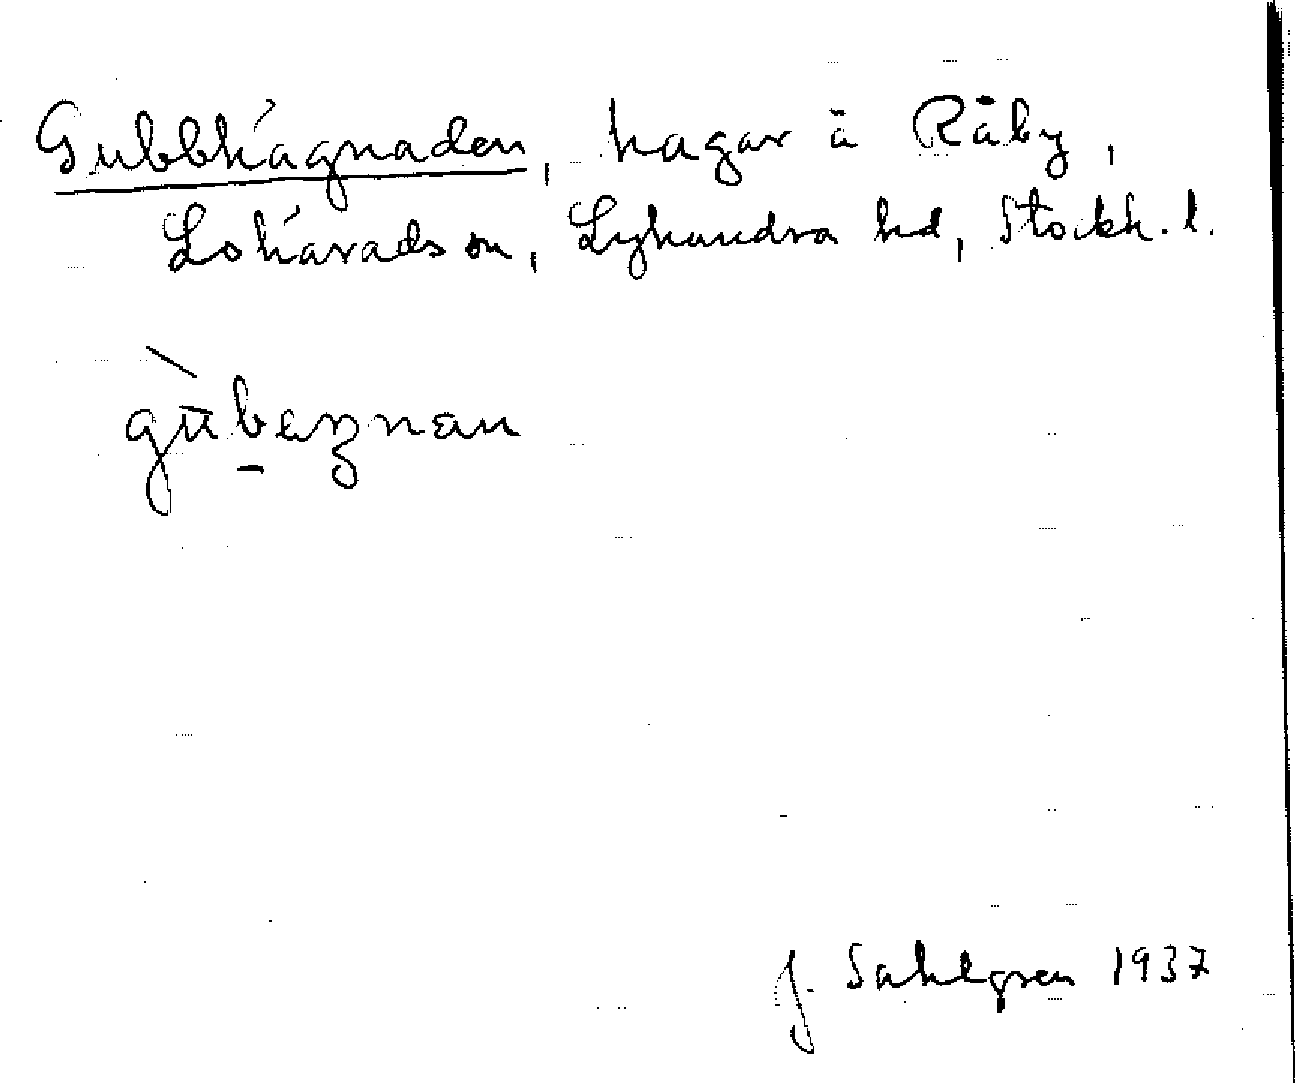 Gubbhägnaden, hagar å Råby,
Lohärads sn, Lyhundra hd, Stockh. l.
J. Sahlgren 1937